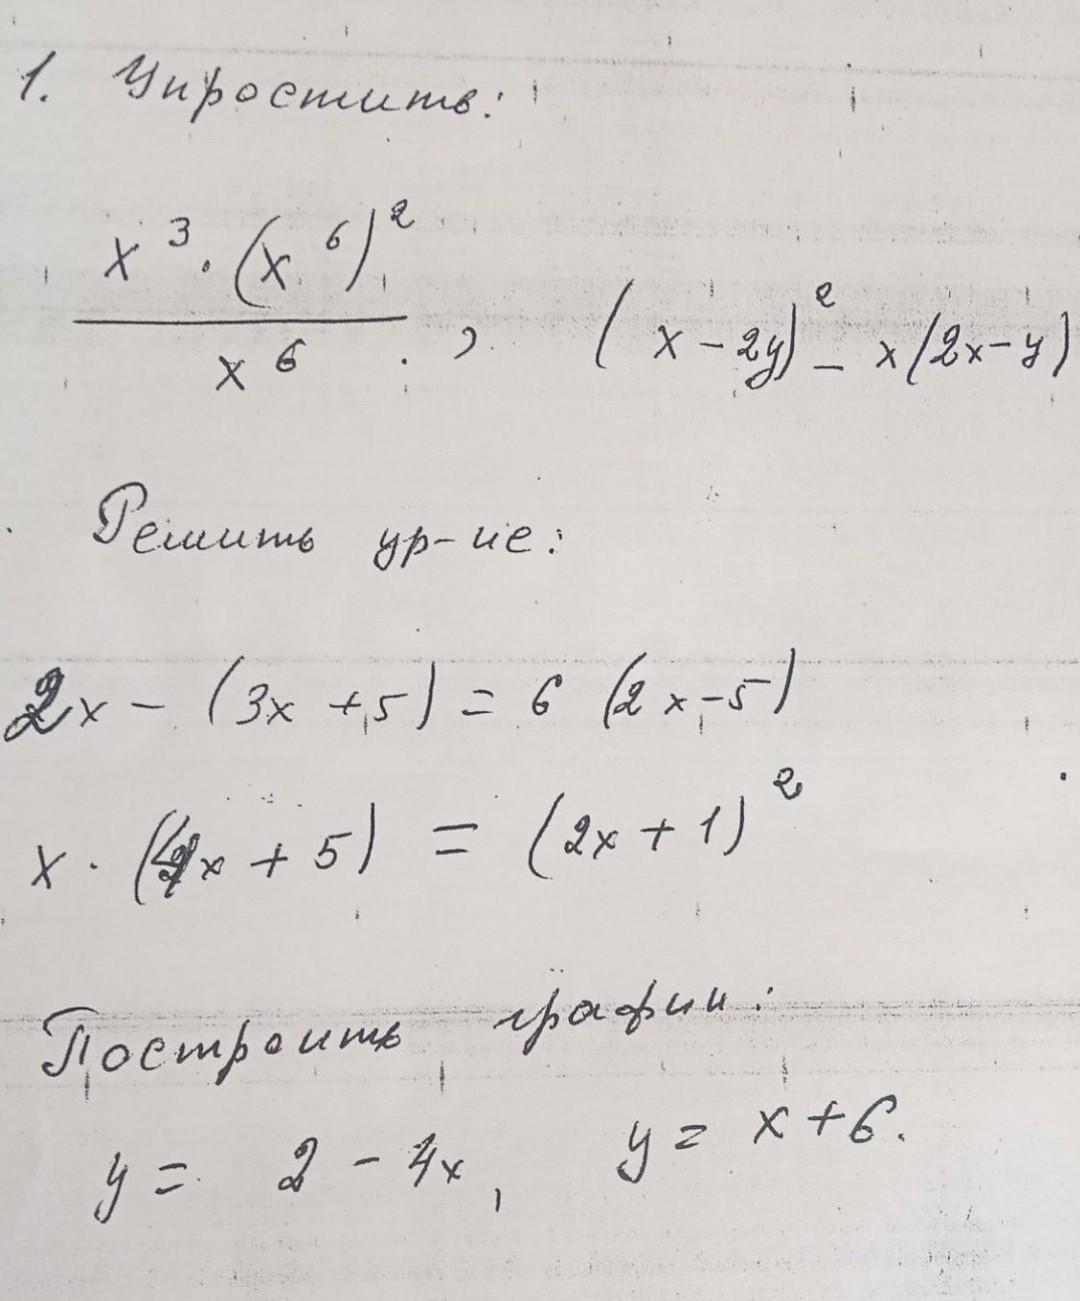 1. Упростить:
x³·(x⁶)²
x⁶ , (x-2y)² - x(2x-y)
Решить ур-ие:
2x - (3x+5) = 6 (2x-5)
x · (4x + 5) = (2x + 1)²
Построить графики:
y = 2 - 4x, y = x + 6.